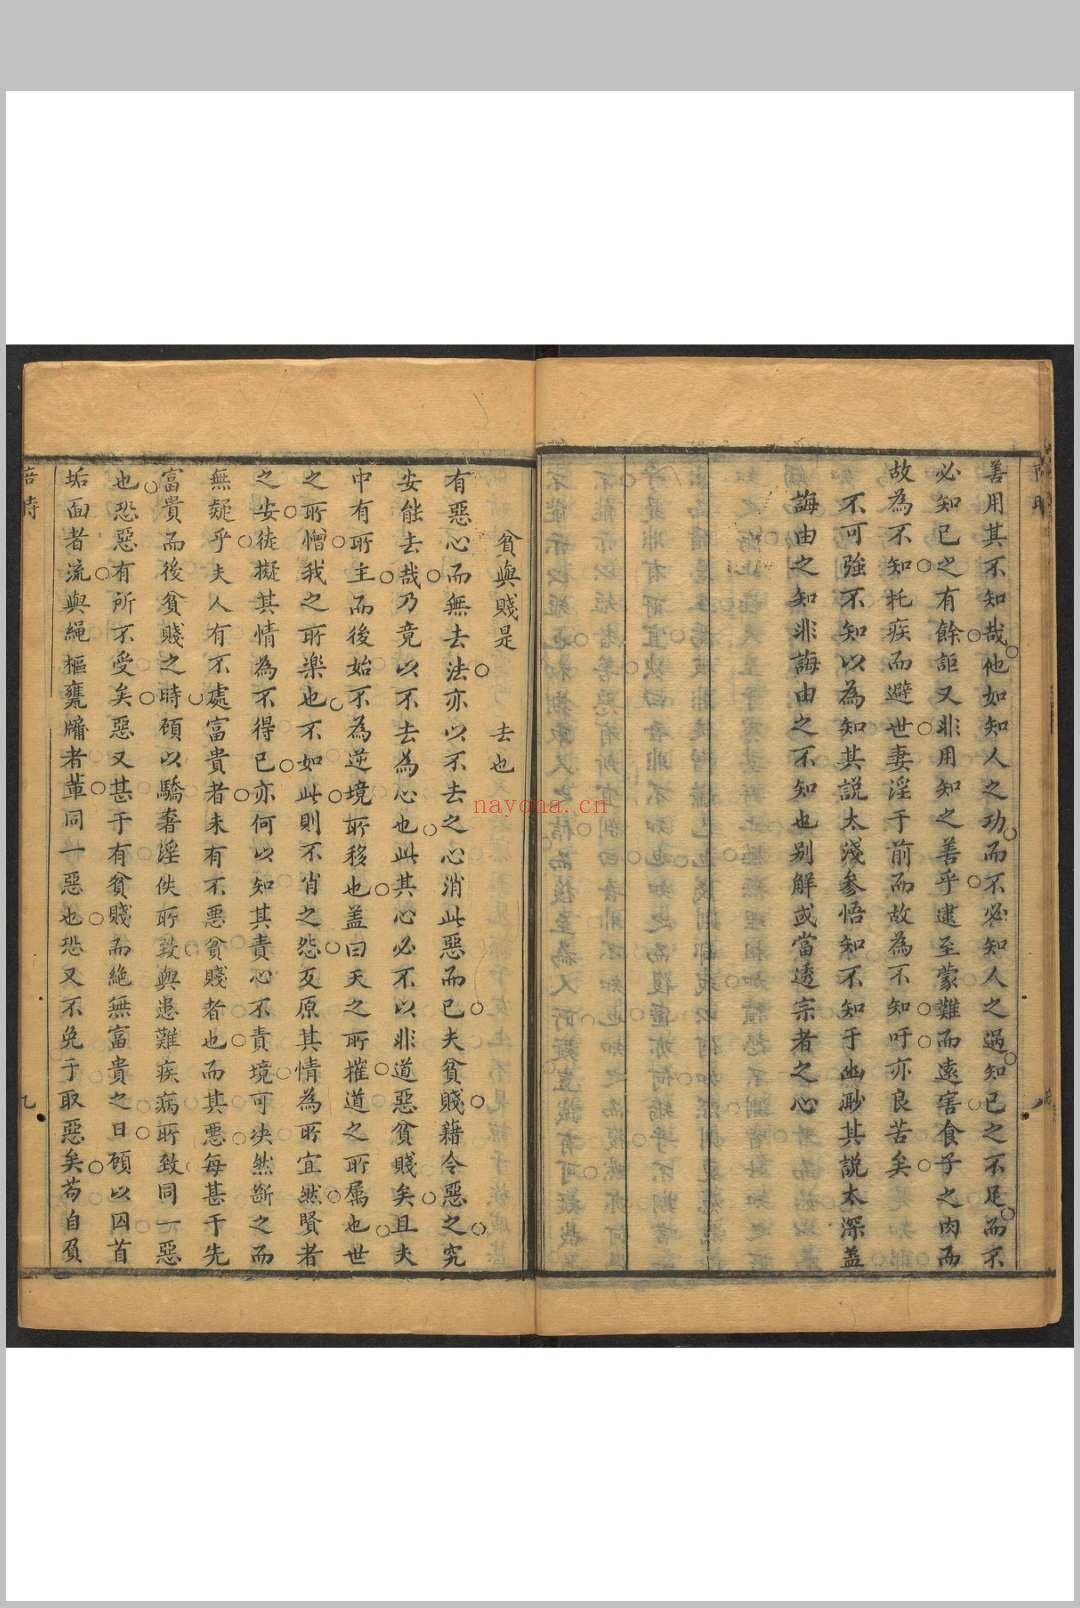 善用其不知哉他如知人之功而不必知人之過知已之不足而不
必知已之有餘詎又非用知之善乎逮至蒙難而遠害食子之肉而
故為不知托疾而避世妻淫于前而故為不知吁亦良苦矣
不可強不知以為知其說太淺參悟知不知于幽渺其說太深盖
誨由之知非誨由之不知也别解或當透宗者之心
貧與賤是 去也
有惡心而無去法亦以不去之心消此惡而已夫貧賤藉令惡之究
安能去哉乃竟以不去為心也此其心必不以非道惡貧賤矣且夫
中有所主而後始不為逆境所移也盖曰天之所摧道之所屬也世
之所憎我之所樂也不如此則不肖之怨反原其情為所宜然賢者
之安徒擬其情為不得已亦何以知其責心不責境可决然斷之而
無疑乎夫人有不處富貴者未有不惡貧賤者也而其惡每甚于先
富貴而後貧賤之時頋以驕奢淫佚所致與患難疾病所致同一惡
也恐惡有所不受矣惡又甚于有貧賤而絶無富貴之日頋以囚首
垢面者流與繩樞甕牖者輩同一惡也恐又不免于取惡矣苟自負
nayona.cn